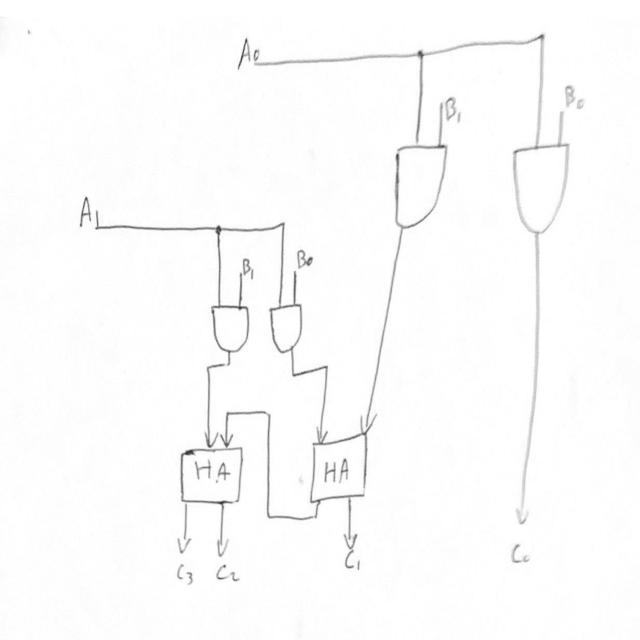 A₀
B₁
B₀
A₁
B₁
B₀
HA
HA
C₃
C₂
C₁
C₀